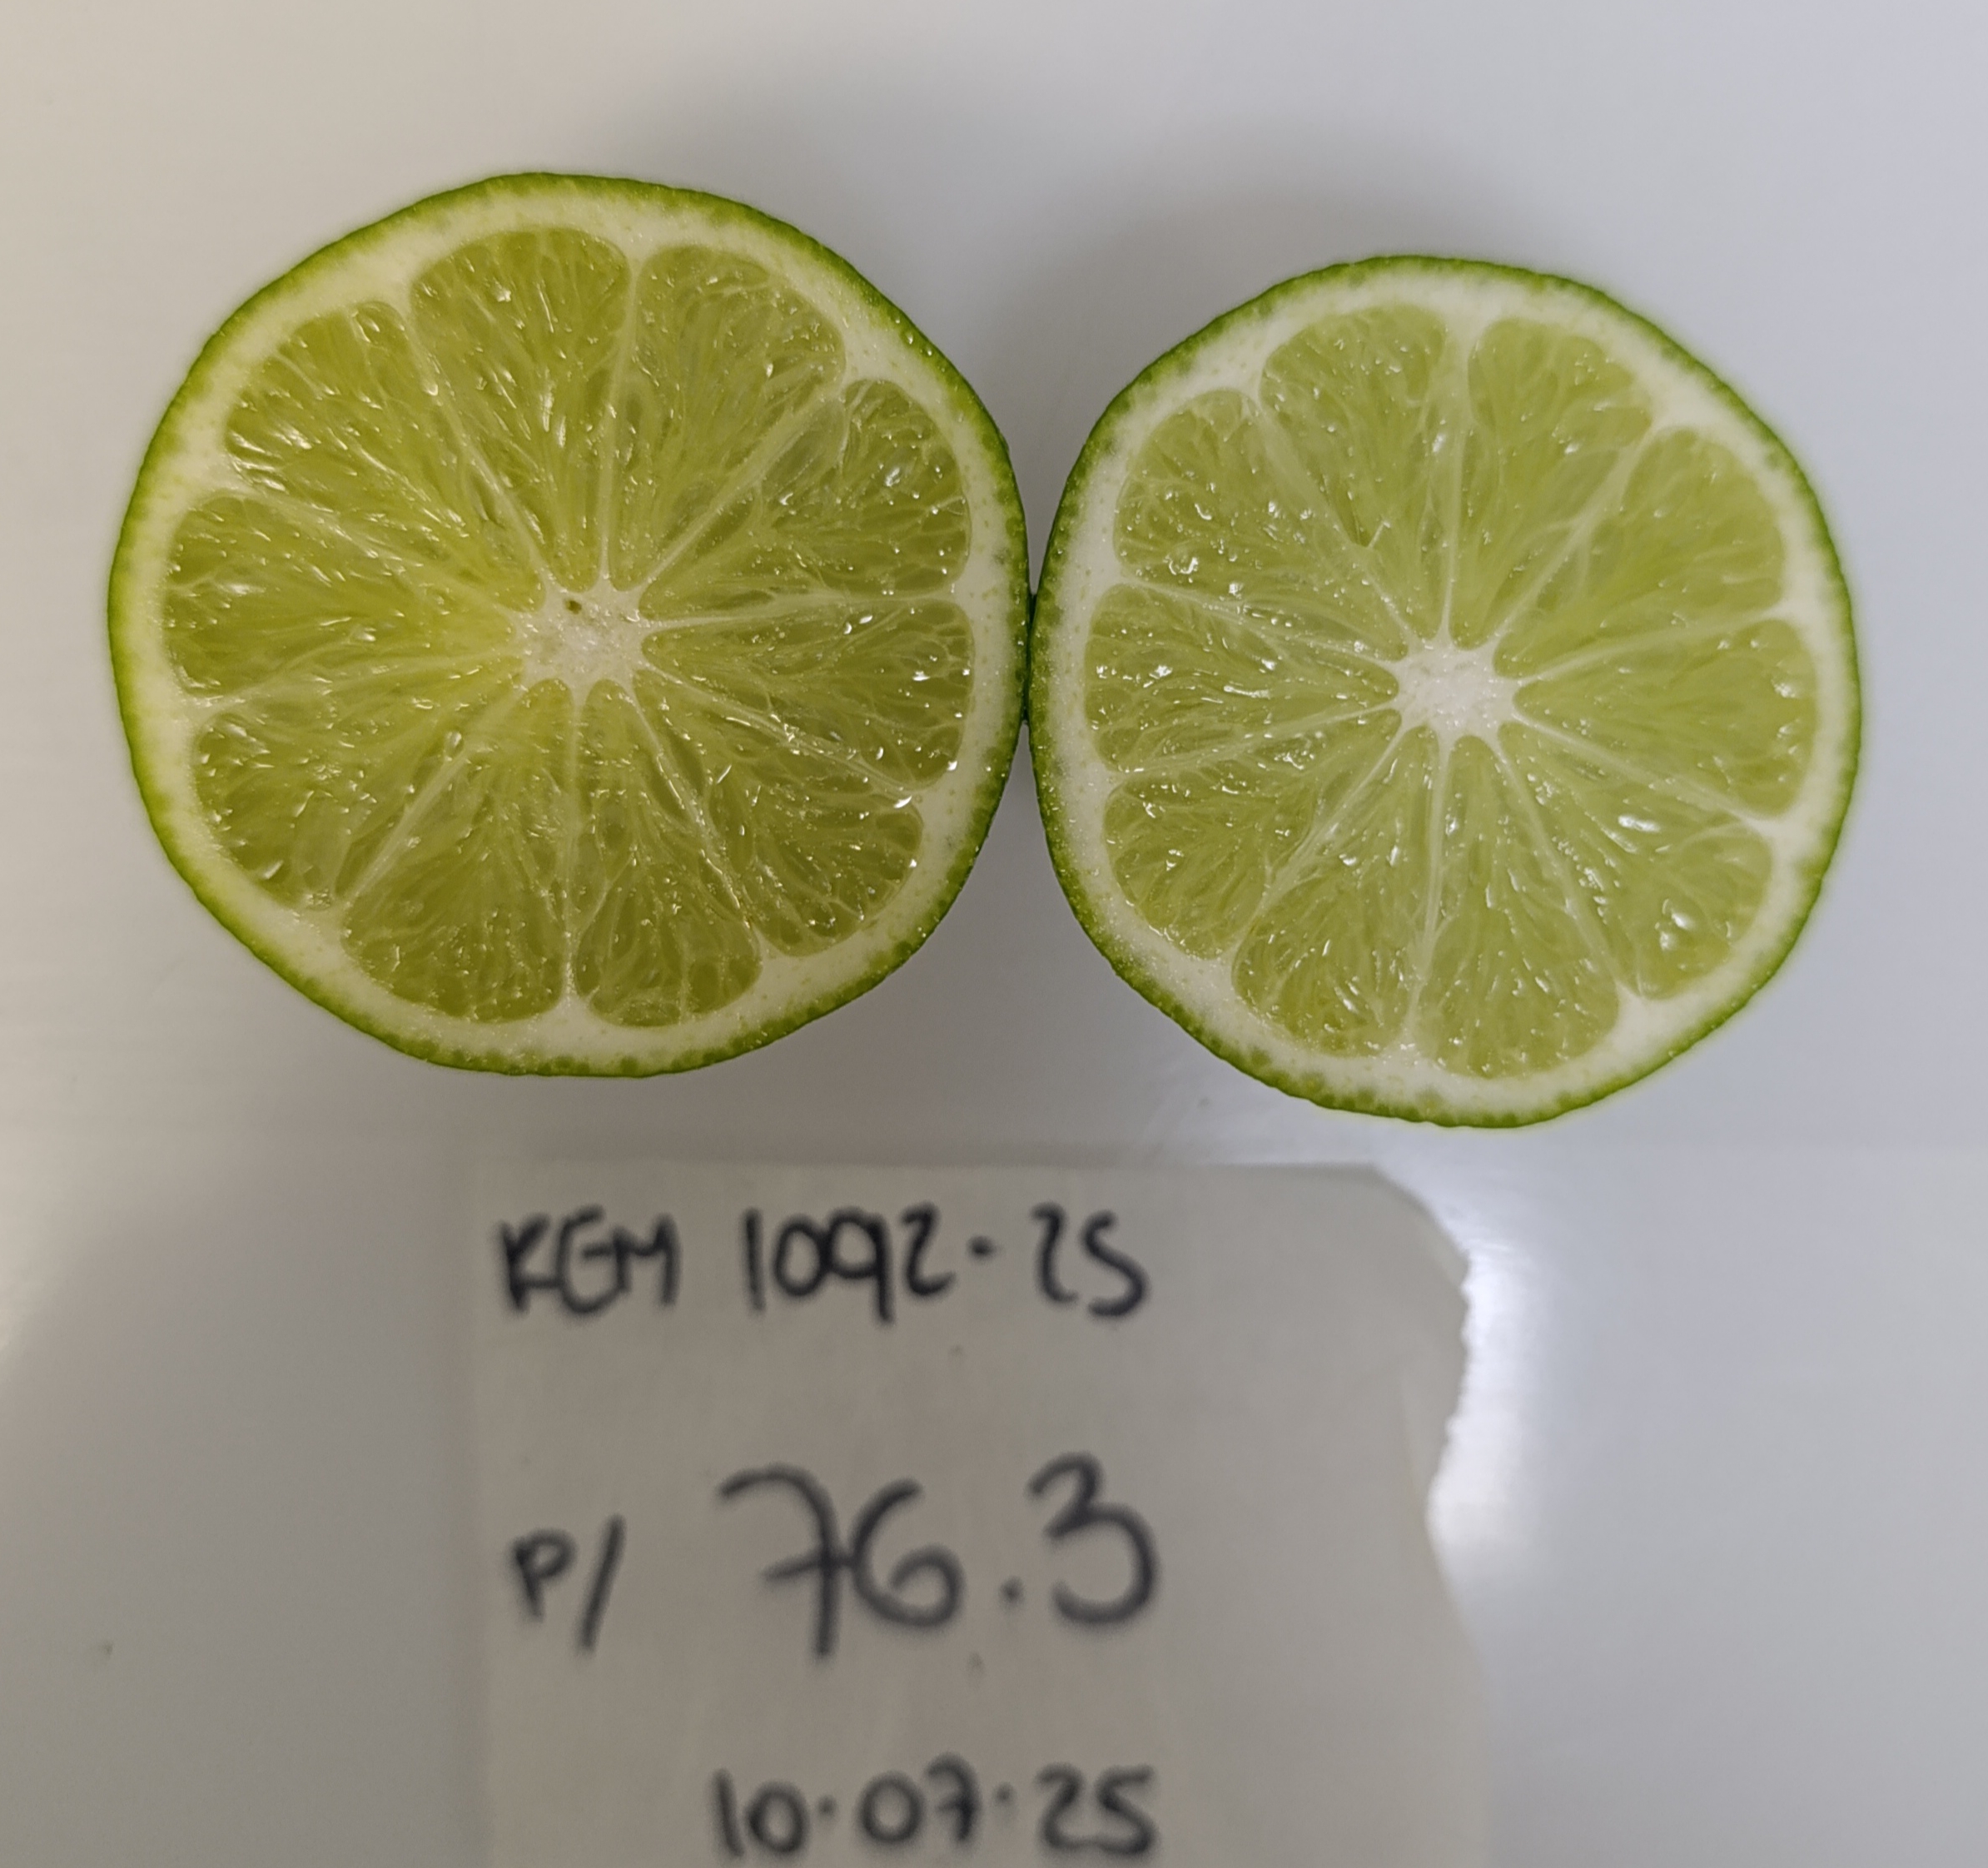 REM 1092-25
P/ 76.3
10.07.25